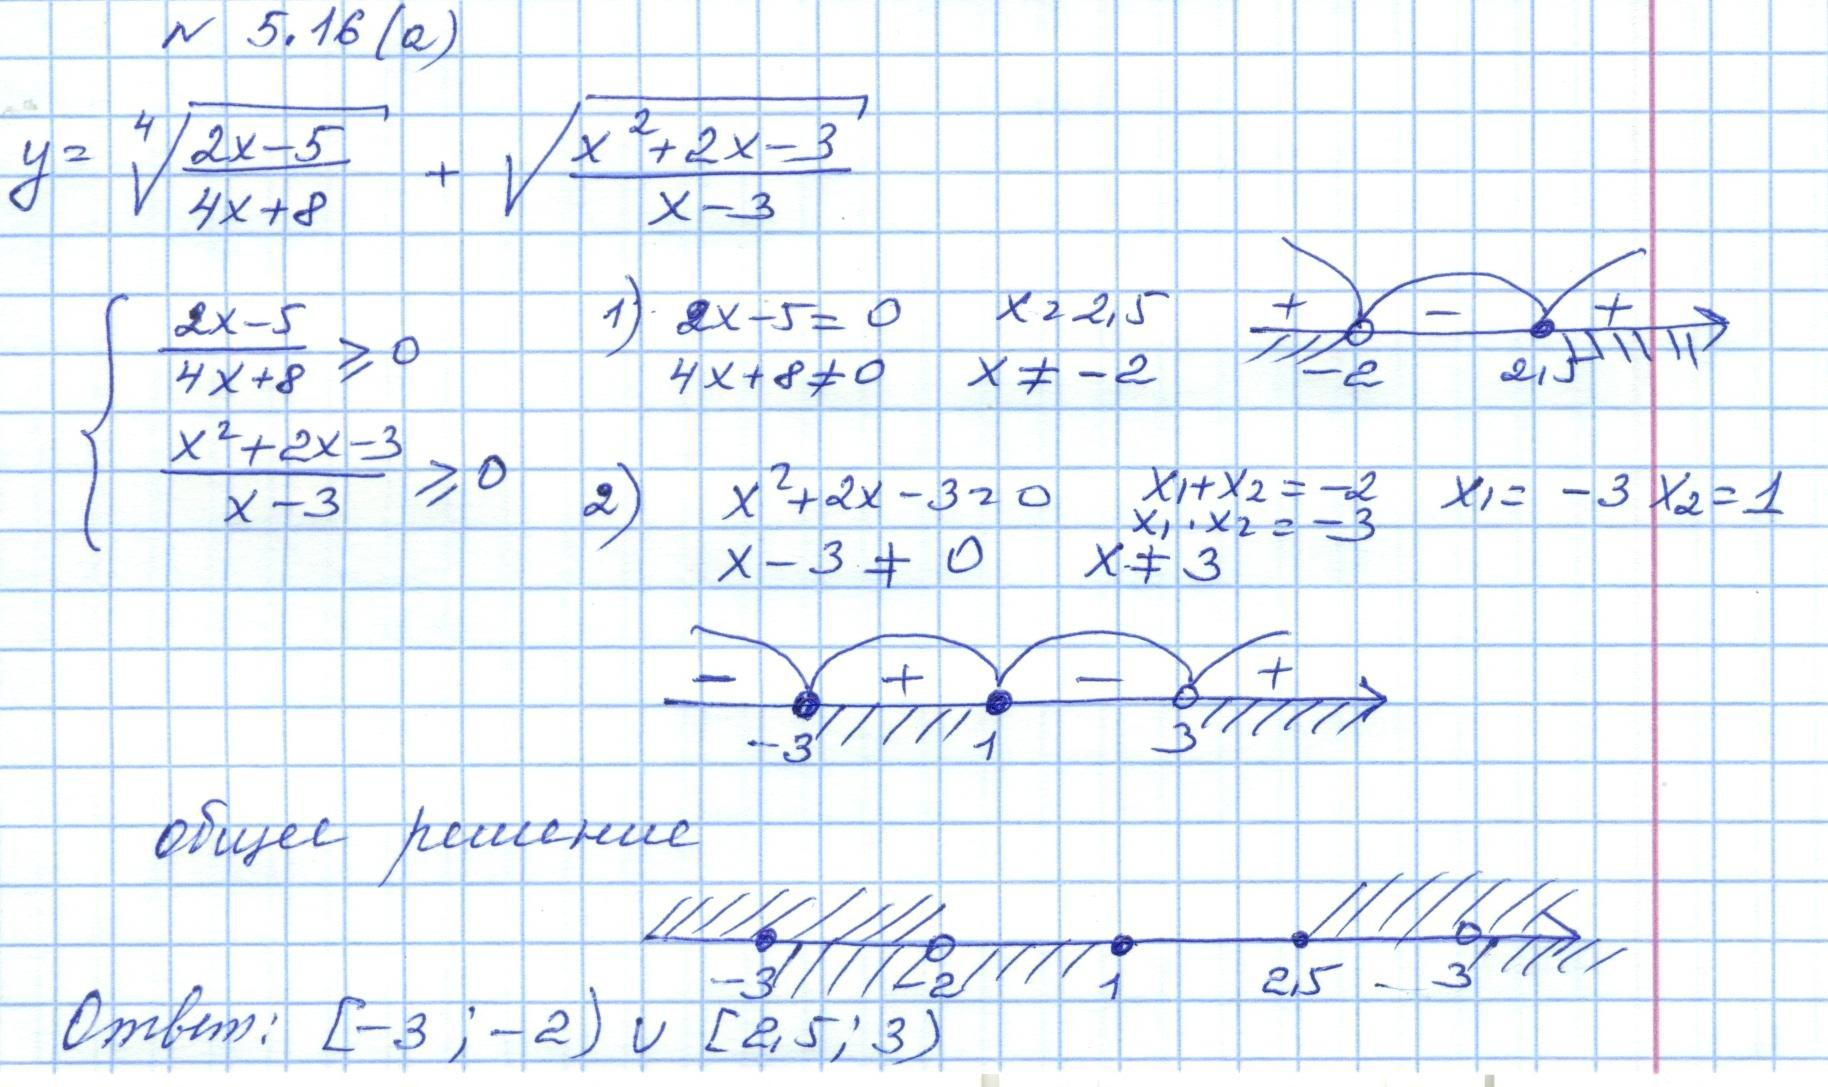 № 5.16(а)
y = ⁴√((2x−5)/(4x+8)) + √((x²+2x−3)/(x−3))
{ (2x−5)/(4x+8) ⩾ 0
(x²+2x−3)/(x−3) ⩾ 0
1) 2x−5=0 x=2,5
4x+8≠0 x≠−2
+ − +
−2 2,5
2) x²+2x−3=0 x₁+x₂=−2 x₁=−3 x₂=1
x₁·x₂=−3
x−3≠0 x≠3
− + − +
−3 1 3
общее решение
−3 −2 1 2,5 3
Ответ: [−3;−2) ∪ [2,5;3)